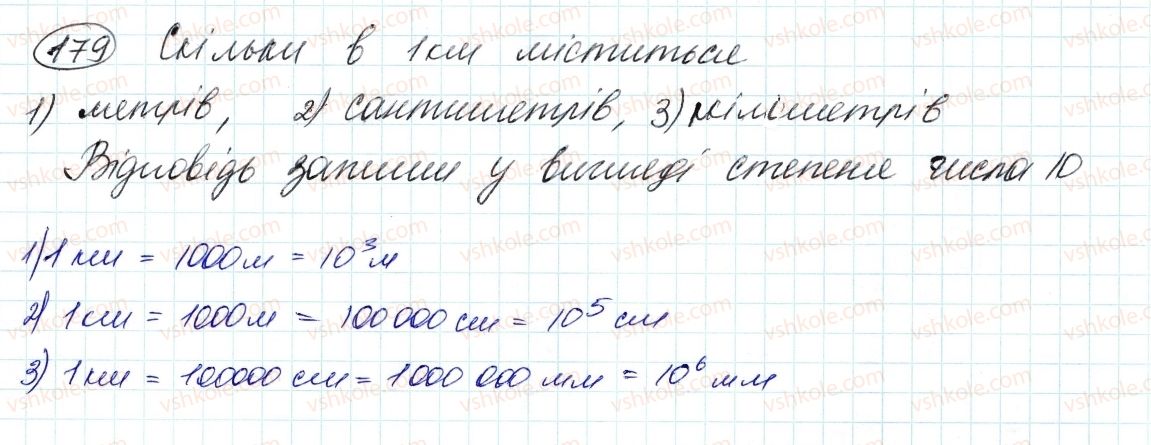 179 Скільки в 1 км міститься
1) метрів, 2) сантиметрів, 3) міліметрів
Відповідь запиши у вигляді степеня числа 10
1) 1 км = 1000 м = 10³ м
2) 1 км = 1000 м = 100 000 см = 10⁵ см
3) 1 км = 100000 см = 1000 000 мм = 10⁶ мм